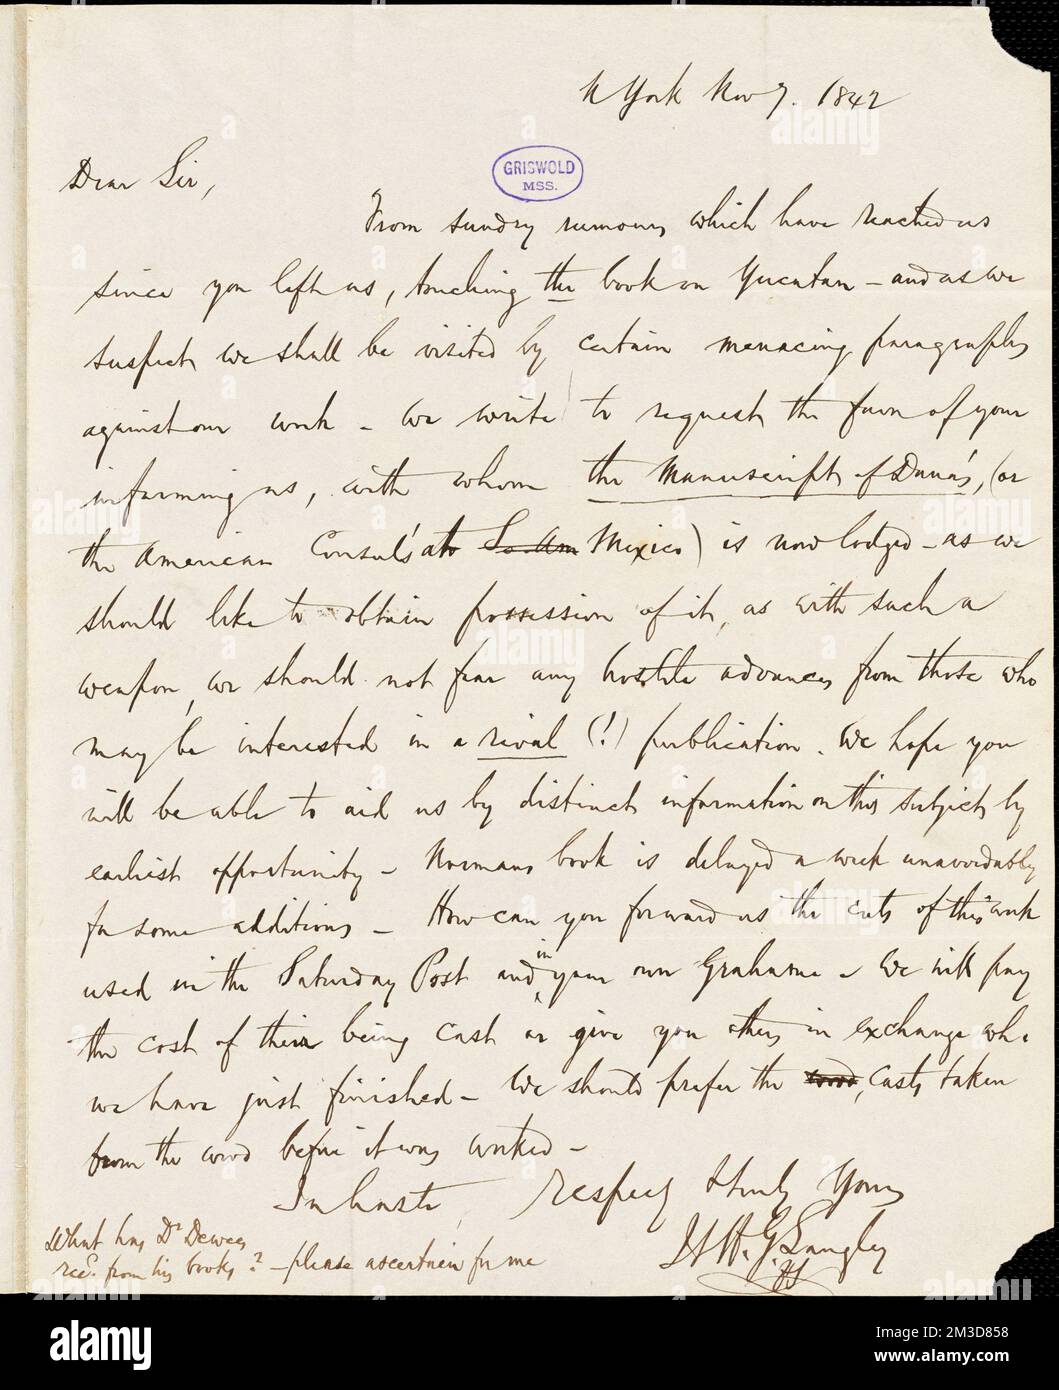 N York Nov 7. 1842
GRISWOLD
MSS.
Dear Sir,
From sundry rumours which have reached us
since you left us, touching the book on Yucatan – and as we
suspect we shall be visited by certain menacing paragraphs
against our work – we write to request the favor of your
informing us, with whom the manuscript of Dana's, (or
the American Consul's at So. Am Mexico) is now lodged – as we
should like to obtain possession of it, as with such a
weapon, we should not fear any hostile advances from those who
may be interested in a rival (!) publication. We hope you
will be able to aid us by distinct information on this subject, by
earliest opportunity – Normans book is delayed a week unavoidably
for some additions – How can you forward us the cuts of this work
used in the Saturday Post and in your own Grahame – We will pay
the cost of their being cast or give you others in exchange wh.
we have just finished – We should prefer the wood, casts taken
from the wood before it was worked –
In haste, Respectfully Yours
H. G. Langley
What has Dr Dewees
recd. from his books? – please ascertain for me
alamy
Image ID: 2M3D858
www.alamy.com